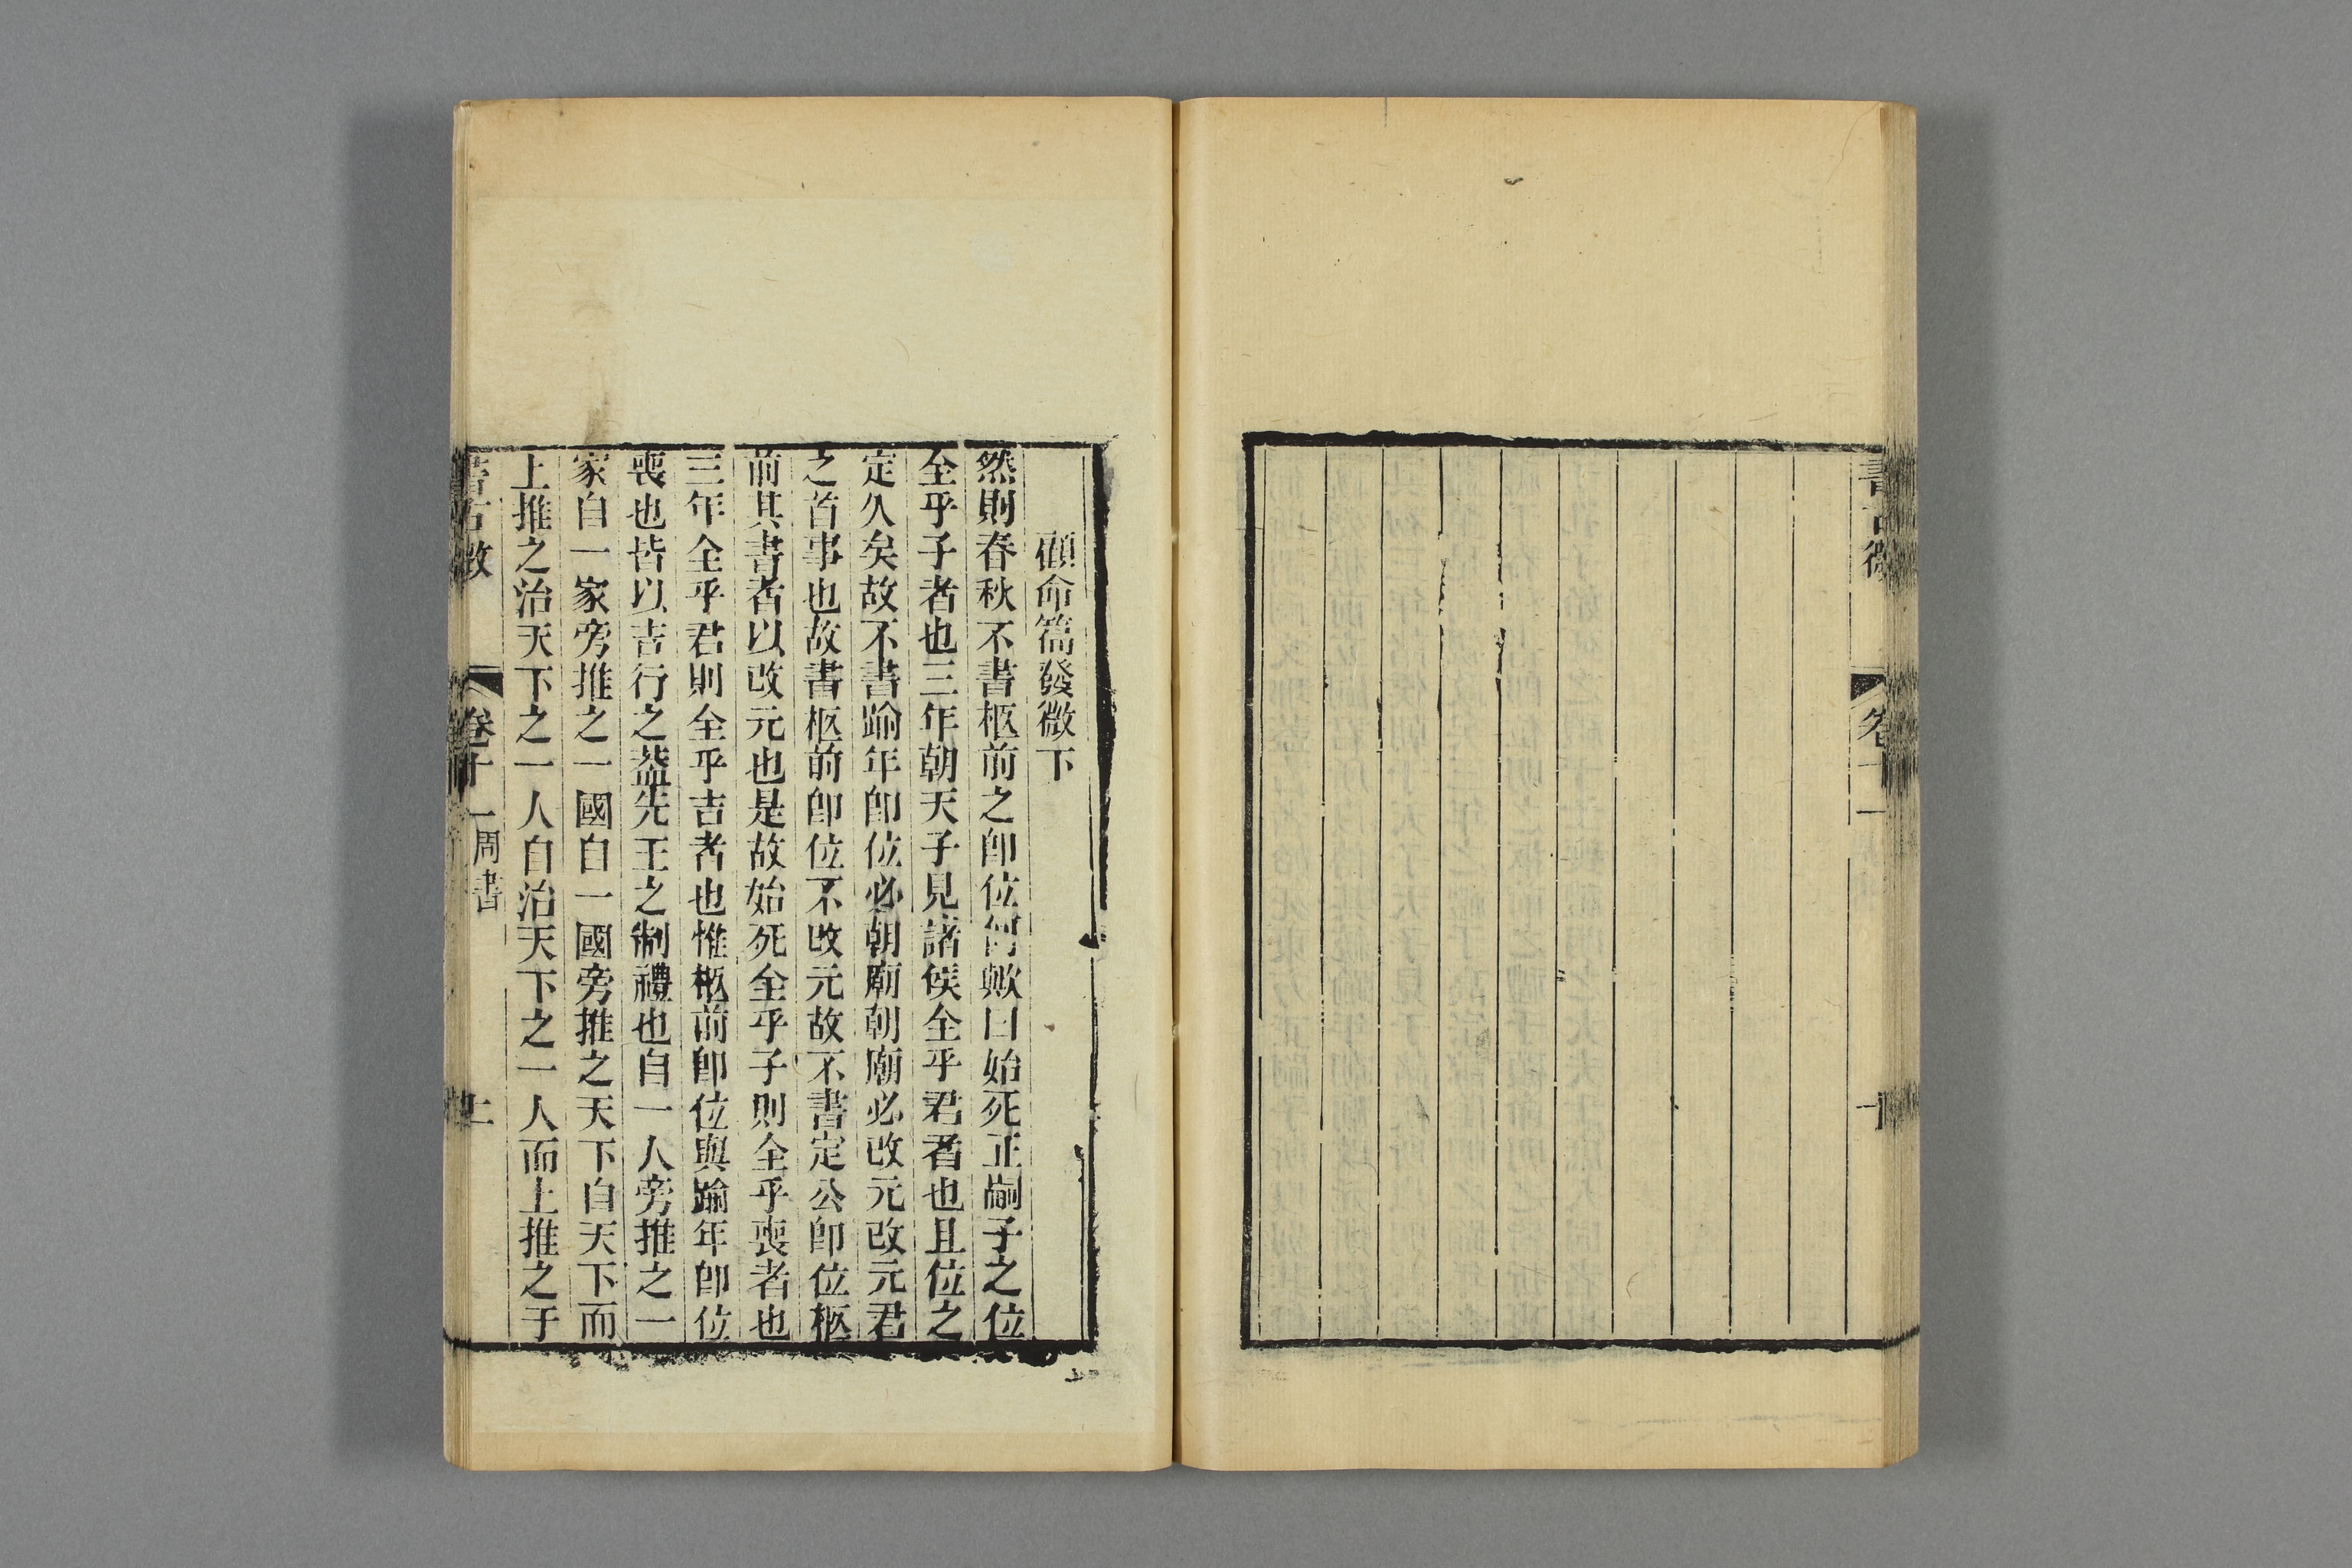 書古微
卷十一
十
顧命篇發微下
然則春秋不書柩前之卽位何歟曰始死正嗣子之位
全乎子者也三年朝天子見諸侯全乎君者也且位之
定久矣故不書踰年卽位必朝廟朝廟必改元改元君
之首事也故書柩前卽位不改元故不書定公卽位柩
前其書者以改元也是故始死全乎子則全乎喪者也
三年全乎君則全乎吉者也惟柩前卽位與踰年卽位
喪也皆以吉行之葢先王之制禮也自一人旁推之一
家自一家旁推之一國自一國旁推之天下自天下而
上推之治天下之一人自治天下之一人而上推之于
書古微
卷十一
周書